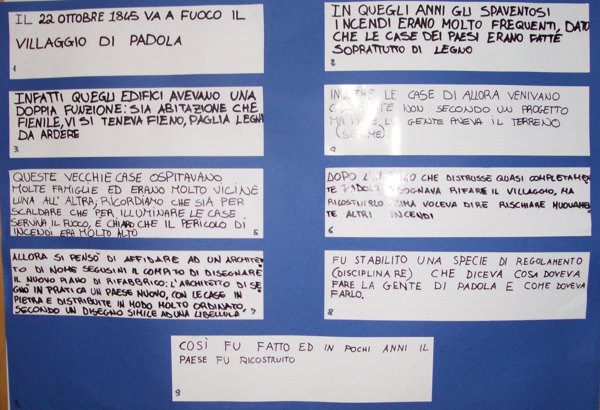 IL 22 OTTOBRE 1845 VA A FUOCO IL
VILLAGGIO DI PADOLA
1
IN QUEGLI ANNI GLI SPAVENTOSI
INCENDI ERANO MOLTO FREQUENTI, DATO
CHE LE CASE DEI PAESI ERANO FATTE
SOPRATTUTTO DI LEGNO
2
INFATTI QUEGLI EDIFICI AVEVANO UNA
DOPPIA FUNZIONE: SIA ABITAZIONE CHE
FIENILE, VI SI TENEVA FIENO, PAGLIA LEGNA
DA ARDERE
3
INOLTRE LE CASE DI ALLORA VENIVANO
NON SECONDO UN PROGETTO
MA DOVE LA GENTE AVEVA IL TERRENO
4
QUESTE VECCHIE CASE OSPITAVANO
MOLTE FAMIGLIE ED ERANO MOLTO VICINE
L'UNA ALL'ALTRA, RICORDIAMO CHE SIA PER
SCALDARE CHE PER ILLUMINARE LE CASE
SERVIVA IL FUOCO, E CHIARO CHE IL PERICOLO DI
INCENDI ERA MOLTO ALTO
5
DOPO CHE DISTRUSSE QUASI COMPLETAMEN
TE PADOLA, BISOGNAVA RIFARE IL VILLAGGIO, MA
RICOSTUIRLO PRIMA VOLEVA DIRE RISCHIARE NUOVAMEN
TE ALTRI INCENDI
6
ALLORA SI PENSÒ DI AFFIDARE AD UN ARCHITET
TO DI NOME SEGUSINI IL COMPITO DI DISEGNARE
IL NUOVO PIANO DI RIFABBRICO; L'ARCHITETTO DI SE
GNO IN PRATICA UN PAESE NUOVO, CON LE CASE IN
PIETRA E DISTRIBUITE IN MODO MOLTO ORDINATO,
SECONDO UN DISEGNO SIMILE AD UNA LIBELLULA
7
FU STABILITO UNA SPECIE DI REGOLAMENTO
(DISCIPLINARE) CHE DICEVA COSA DOVEVA
FARE LA GENTE DI PADOLA E COME DOVEVA
FARLO.
8
COSÌ FU FATTO ED IN POCHI ANNI IL
PAESE FU RICOSTRUITO
9